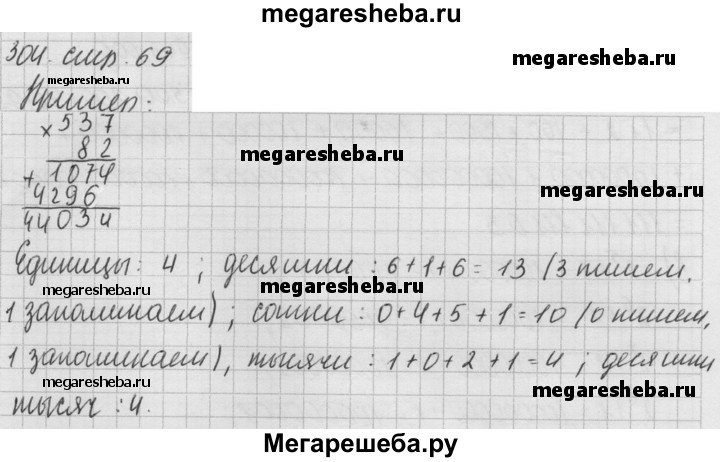 megaresheba.ru
304. стр. 69
megaresheba.ru
Пример:
× 537
82
megaresheba.ru
+ 1074
4296
44034
Единицы: 4 ; десятки : 6+1+6= 13 (3 пишем,
megaresheba.ru
1 запоминаем) ; сотни : 0+4+5+1=10 (0 пишем,
1 запоминаем), тысячи : 1+0+2+1=4 ; десятки
megaresheba.ru
megaresheba.ru
тысяч : 4.
Мегарешеба.ру